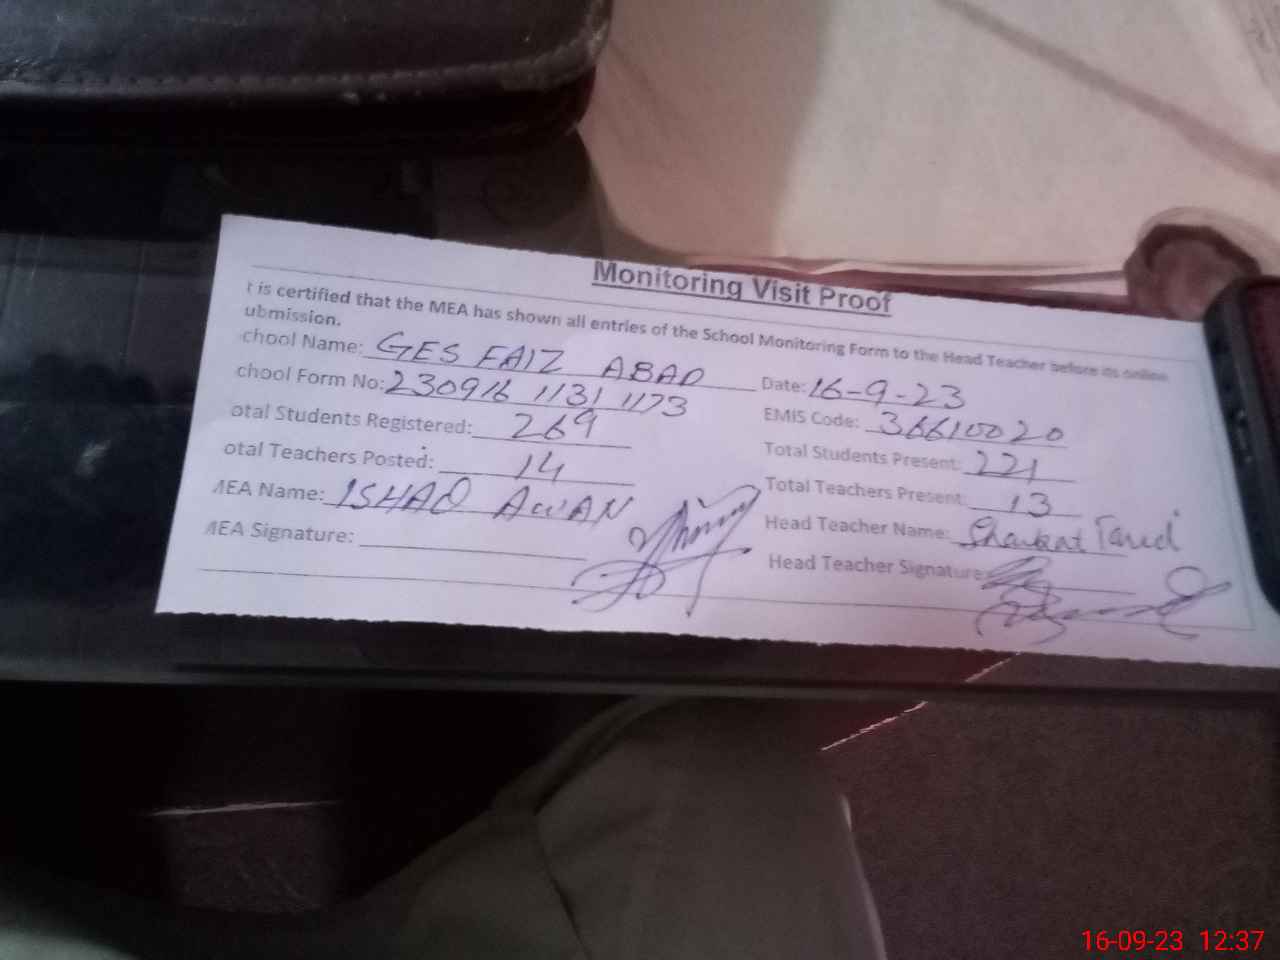 Monitoring Visit Proof
t is certified that the MEA has shown all entries of the School Monitoring Form to the Head Teacher before its online
ubmission.
chool Name: GES FAIZ ABAD Date: 16-9-23
chool Form No: 230916 1131 1173 EMIS Code: 36610020
otal Students Registered: 269 Total Students Present: 221
otal Teachers Posted: 14 Total Teachers Present: 13
MEA Name: ISHAQ AWAN Head Teacher Name: Shaukat
MEA Signature: Head Teacher Signature
16-09-23 12:37